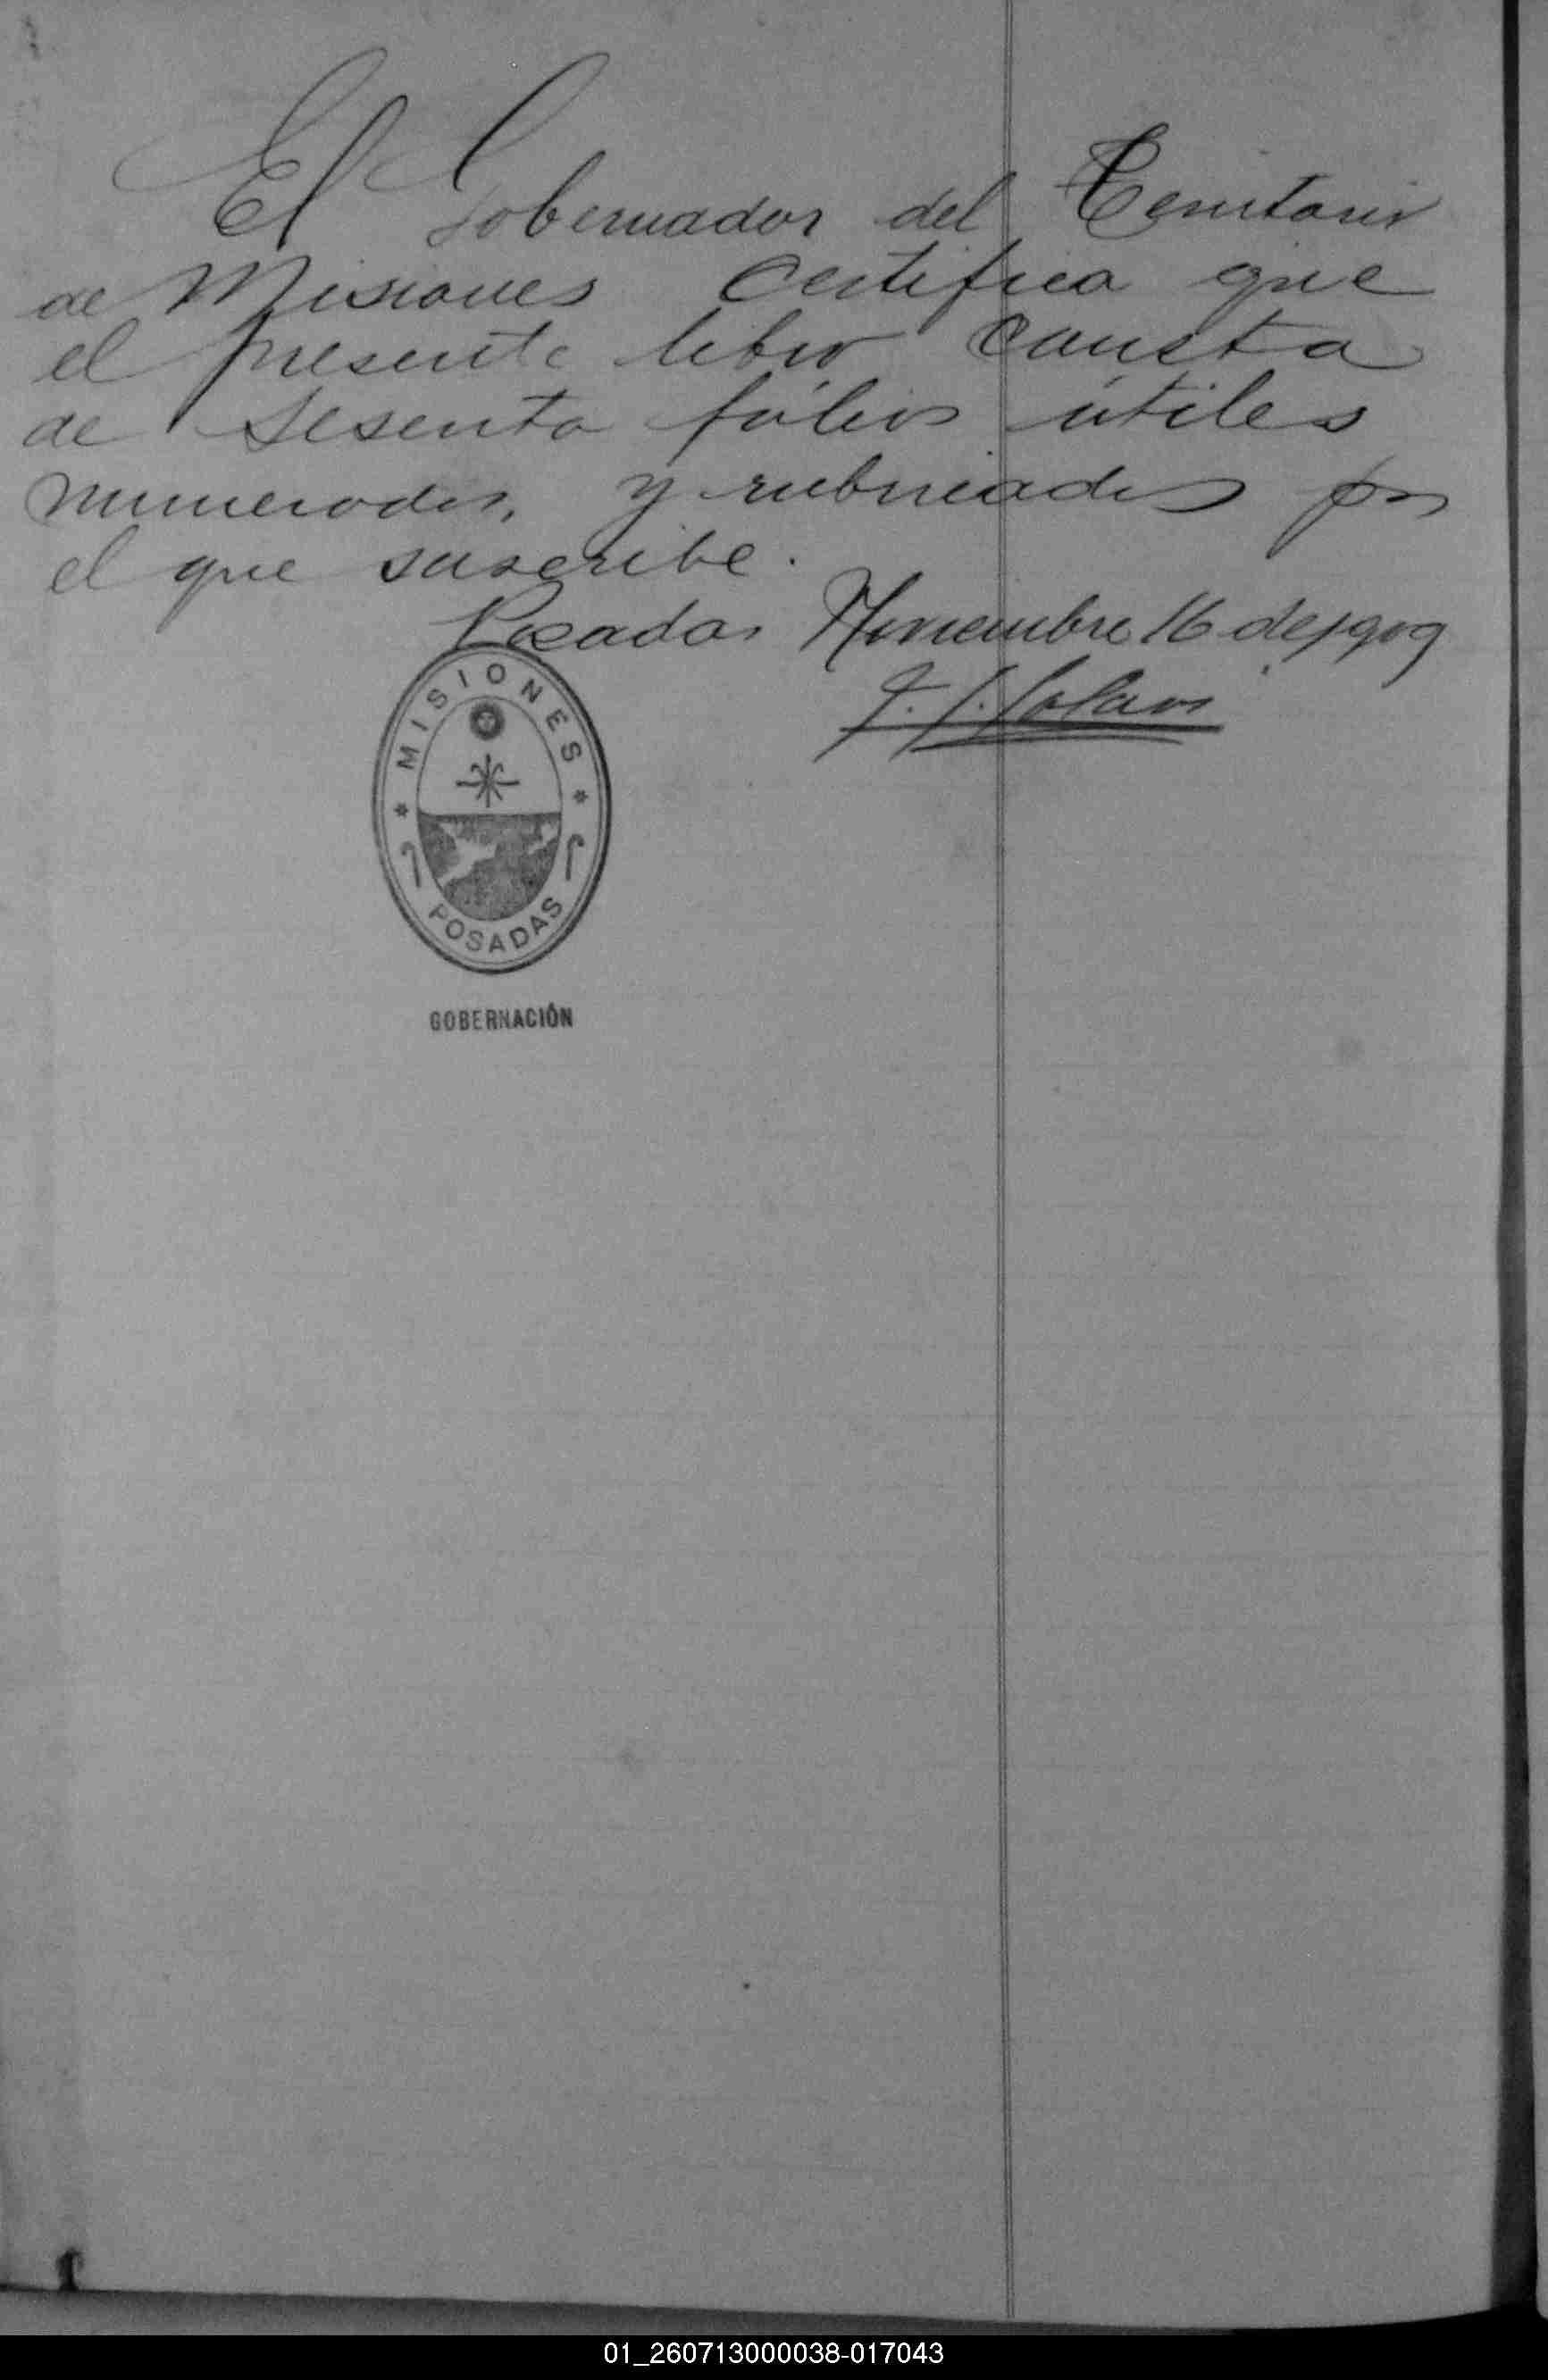 El Gobernador del Territorio
de Misiones Certifica que
el presente libro consta
de sesenta fólios útiles
numerados, y rubricados por
el que suscribe.
Posadas Noviembre 16 de 1909
MISIONES
POSADAS
GOBERNACIÓN
01_260713000038-017043